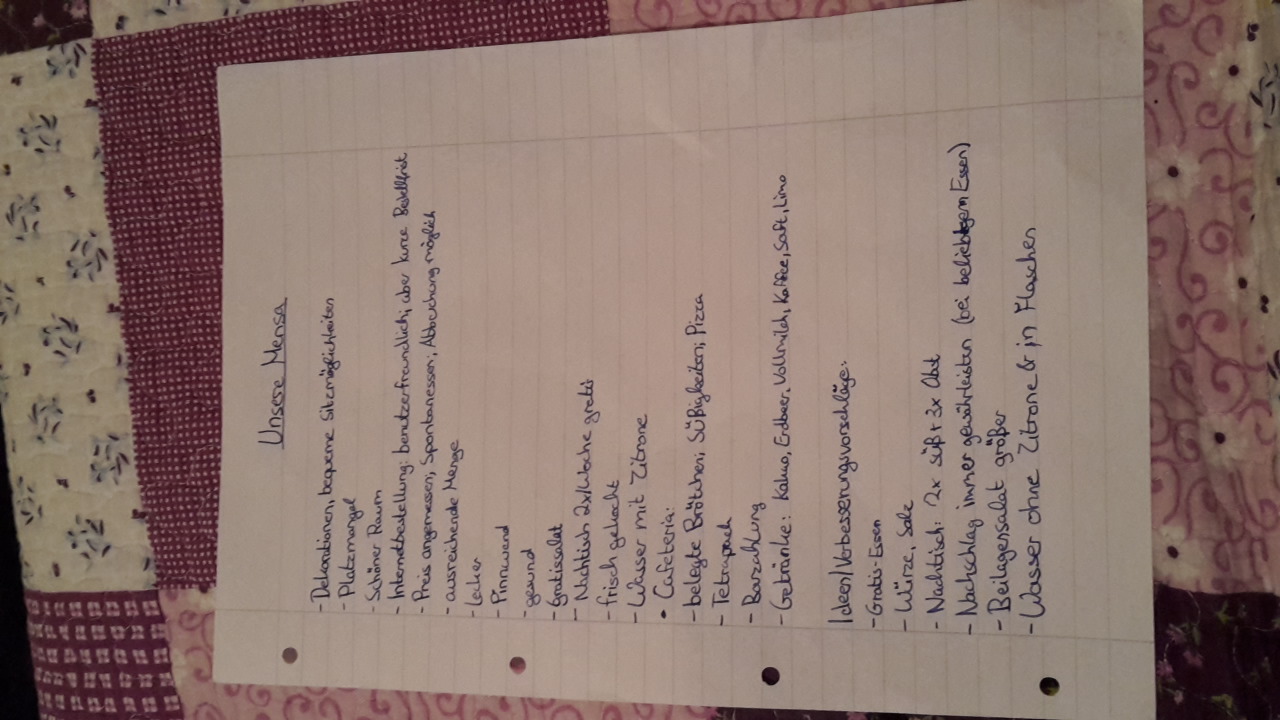 Unsere Mensa
- Dekorationen, bequeme Sitzmöglichkeiten
- Platzmangel
- Schöner Raum
- Internetbestellung: benutzerfreundlich, aber kurze Bestellfrist
- Preis angemessen, Spontanessen; Abbuchung möglich
- ausreichende Menge
- Lecker
- Pinnwand
- gesund
- Gratissalat
- Nachtisch 2x/Woche gratis
- frisch gekocht
- Wasser mit Zitrone
• Cafeteria:
- belegte Brötchen; Süßigkeiten; Pizza
- Tetrapack
- Barzahlung
- Getränke: Kakao, Erdbeer, Vollmilch, Kaffee, Saft, Limo
Ideen/Verbesserungsvorschläge:
- Gratis-Essen
- Würze, Salz
- Nachtisch: 2x süß + 3x Obst
- Nachschlag immer gewährleisten (bei beliebigem Essen)
- Beilagensalat größer
- Wasser ohne Zitrone & in Flaschen